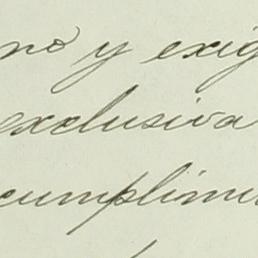 no y exig
exclusiva
cumplimi